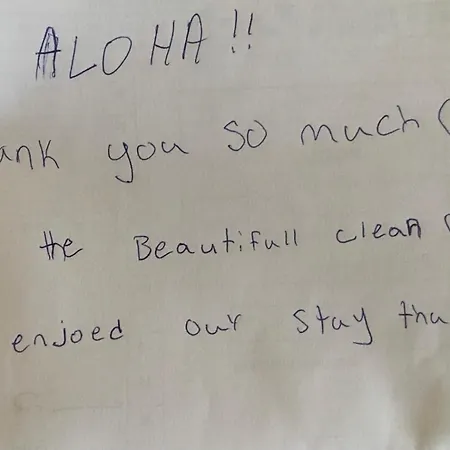 ALOHA!!
ank you so much
the Beautifull clean
enjoed our stay tha